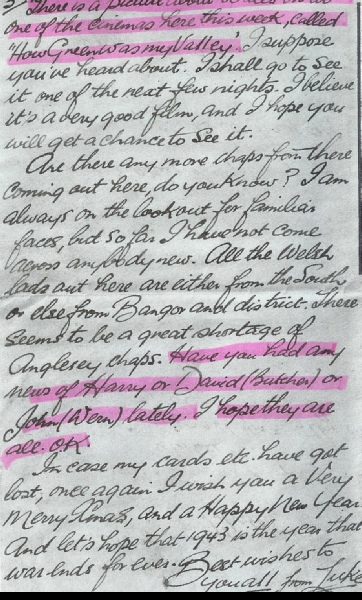 There is a picture
one of the cinemas here this week, called
"How Green was my Valley". I suppose
you've heard about. I shall go to see
it one of the next few nights. I believe
it's a very good film, and I hope you
will get a chance to see it.
Are there any more chaps from there
coming out here, do you know? I am
always on the lookout for familiar
faces, but so far I have not come
across anybody new. All the Welsh
lads out here are either from the South
or else from Bangor and district. There
seems to be a great shortage of
Anglesey chaps. Have you had any
news of Harry or David (Butcher) or
John (Wern) lately. I hope they are
all O.K.
In case my cards etc. have got
lost, once again I wish you a Very
Merry Xmas, and a Happy New Year
And let's hope that 1943 is the year that
war ends for ever. Best wishes to
you all from Luke